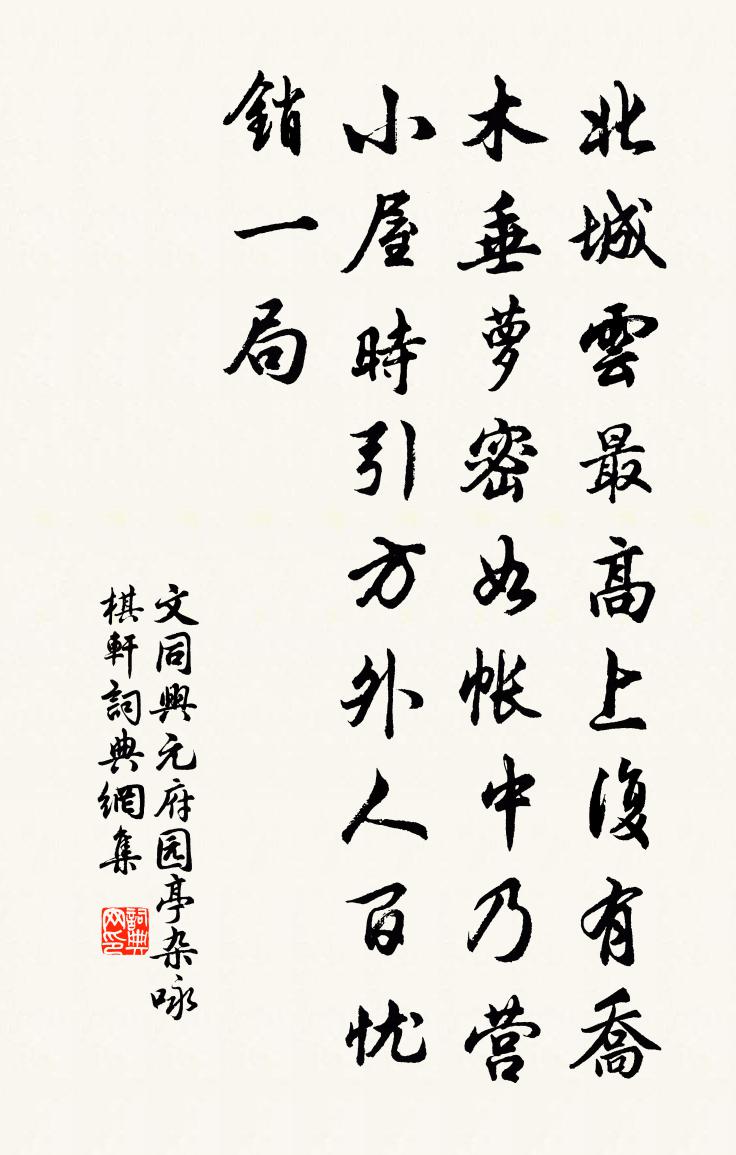 北城雲最高上復有喬
木垂萝密如帐中乃营
小屋時引方外人百忧
銷一局
文同興元府园亭杂咏
棋軒詞典網集
詞典网印